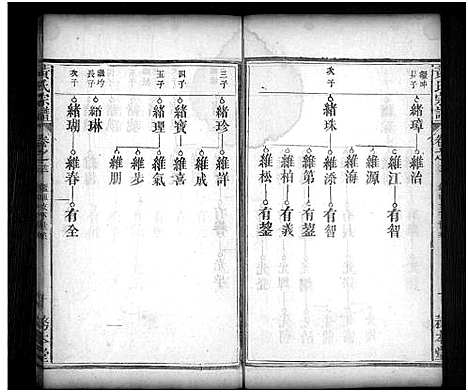 黃氏宗譜
長子
緒璋
維治
維江
有智
維源
維海
次子
緒珠
維添
有智
維第
有鋆
維柏
有義
維松
有鋆
三子
緒珍
維詳
維成
四子
緒寶
維喜
五子
緒理
維氣
維步
維朋
長子
緒琳
次子
緒瑚
維春
有全
黃氏宗譜
務本堂